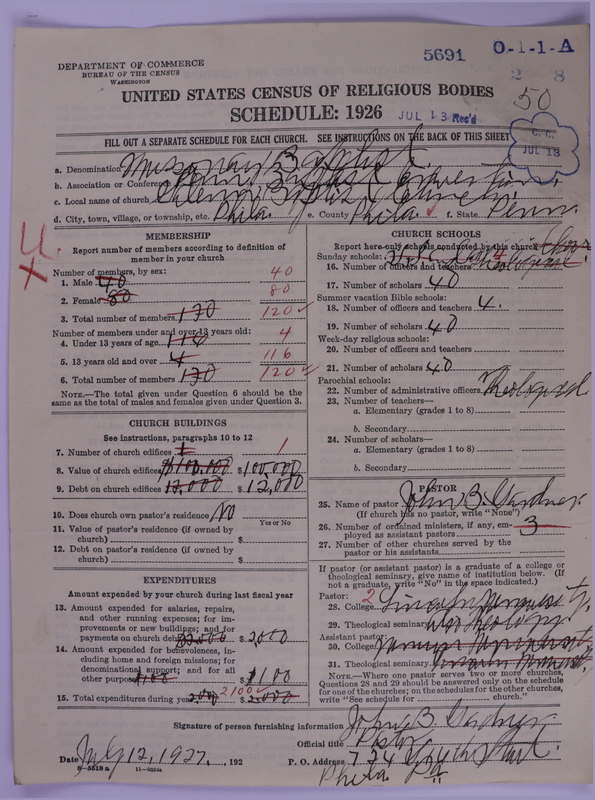 5691 O-1-1-A
DEPARTMENT OF COMMERCE
BUREAU OF THE CENSUS
WASHINGTON
2 8
UNITED STATES CENSUS OF RELIGIOUS BODIES
50
SCHEDULE: 1926
JUL 13 Rec'd
C. C.
JUL 13
FILL OUT A SEPARATE SCHEDULE FOR EACH CHURCH. SEE INSTRUCTIONS ON THE BACK OF THIS SHEET
a. Denomination Missionary Baptist
b. Association or Conference Penn. Baptist Convention
c. Local name of church Baptist Church
d. City, town, village, or township, etc. Phila. e. County Phila. f. State Penn.
MEMBERSHIP
Report number of members according to definition of
member in your church
Number of members, by sex:
1. Male 40 40
2. Female 80 80
3. Total number of members 120
Number of members under and over 13 years old:
4. Under 13 years of age 4
5. 13 years old and over 4 116
6. Total number of members 120
NOTE.—The total given under Question 6 should be
same as the total of males and females given under Question 3.
CHURCH BUILDINGS
See instructions, paragraphs 10 to 12
7. Number of church edifices 1 1
8. Value of church edifices $100.000 $100,000
9. Debt on church edifices 12,000 $12,000
10. Does church own pastor's residence? No
Yes or No
11. Value of pastor's residence (if owned by
church) $
12. Debt on pastor's residence (if owned by
church) $
EXPENDITURES
Amount expended by your church during last fiscal year
13. Amount expended for salaries, repairs,
and other running expenses; for im-
provements or new buildings; and for
payments on church debt $2000 $2,000
14. Amount expended for benevolences, in-
cluding home and foreign missions; for
denominational support; and for all
other purposes $100
15. Total expenditures during year 2100 $2,000
CHURCH SCHOOLS
Report here only schools conducted by this church
Sunday schools:
16. Number of officers and teachers 4
17. Number of scholars 40
Summer vacation Bible schools:
18. Number of officers and teachers 4.
19. Number of scholars 40
Week-day religious schools:
20. Number of officers and teachers
21. Number of scholars 40
Parochial schools:
22. Number of administrative officers Theological
23. Number of teachers—
a. Elementary (grades 1 to 8)
b. Secondary
24. Number of scholars—
a. Elementary (grades 1 to 8)
b. Secondary
PASTOR
25. Name of pastor John B. Gardner
(If church has no pastor, write "None")
26. Number of ordained ministers, if any, em-
ployed as assistant pastors 3
27. Number of other churches served by the
pastor or his assistants
If pastor (or assistant pastor) is a graduate of a college or
theological seminary, give name of institution below. (If
not a graduate, write "No" in the space indicated.)
Pastor:
28. College 2 Lincoln University
29. Theological seminary
Assistant pastor:
30. College
31. Theological seminary
NOTE.—Where one pastor serves two or more churches,
Questions 28 and 29 should be answered only on the schedule
for one of the churches; on the schedules for the other churches,
write "See schedule for church.
Signature of person furnishing information John B. Gardner
Official title Pastor
Date July 12, 1927. , 192 P. O. Address 724 South
8—5518a 11—9034a
Phila Pa